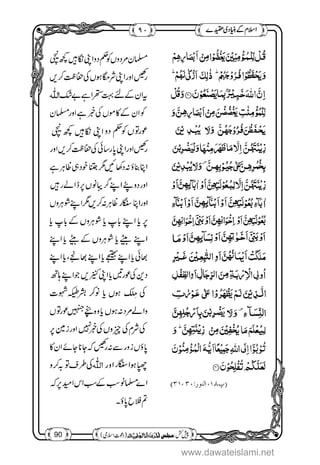 اسلام کے بنیادی عقیدے
۹۰
قُلْ لِّلْمُؤْمِنِیْنَ یَغُضُّوْا مِنْ اَبْصَارِهِمْ
وَ یَحْفَظُوْا فُرُوْجَهُمْؕ-ذٰلِكَ اَزْكٰى لَهُمْؕ-
اِنَّ اللّٰهَ خَبِیْرٌۢ بِمَا یَصْنَعُوْنَ(۳۰) وَ قُلْ
لِّلْمُؤْمِنٰتِ یَغْضُضْنَ مِنْ اَبْصَارِهِنَّ وَ
یَحْفَظْنَ فُرُوْجَهُنَّ وَ لَا یُبْدِیْنَ
زِیْنَتَهُنَّ اِلَّا مَا ظَهَرَ مِنْهَا وَ لْیَضْرِبْنَ
بِخُمُرِهِنَّ عَلٰى جُیُوْبِهِنَّ۪-وَ لَا یُبْدِیْنَ
زِیْنَتَهُنَّ اِلَّا لِبُعُوْلَتِهِنَّ اَوْ اٰبَآىٕهِنَّ اَوْ
اٰبَآءِ بُعُوْلَتِهِنَّ اَوْ اَبْنَآىٕهِنَّ اَوْ اَبْنَآءِ
بُعُوْلَتِهِنَّ اَوْ اِخْوَانِهِنَّ اَوْ بَنِیْۤ اِخْوَانِهِنَّ اَوْ
بَنِیْۤ اَخَوٰتِهِنَّ اَوْ نِسَآىٕهِنَّ اَوْ مَا
مَلَكَتْ اَیْمَانُهُنَّ اَوِ التّٰبِعِیْنَ غَیْرِ
اُولِی الْاِرْبَةِ مِنَ الرِّجَالِ اَوِ الطِّفْلِ
الَّذِیْنَ لَمْ یَظْهَرُوْا عَلٰى عَوْرٰتِ
النِّسَآءِ۪-وَ لَا یَضْرِبْنَ بِاَرْجُلِهِنَّ
لِیُعْلَمَ مَا یُخْفِیْنَ مِنْ زِیْنَتِهِنَّؕ-وَ
تُوْبُوْۤا اِلَى اللّٰهِ جَمِیْعًا اَیُّهَ الْمُؤْمِنُوْنَ
لَعَلَّكُمْ تُفْلِحُوْنَ(۳۱)
(پ۱۸، النور: ۳۰، ۳۱)
مسلمان مردوں کو حکم دو اپنی نگاہیں کچھ نیچی
رکھیں اور اپنی شرمگاہوں کی حفاظت کریں
یہ ان کے لئے بہت ستھرا ہے بے شک اللہ
کو ان کے کاموں کی خبر ہے اور مسلمان
عورتوں کو حکم دو اپنی نگاہیں کچھ نیچی
رکھیں اور اپنی پارسائی کی حفاظت کریں اور
اپنا بناؤ نہ دکھائیں مگر جتنا خود ہی ظاہر ہے
اور دوپٹے اپنے گریبانوں پر ڈالے رہیں
اور اپنا سنگار ظاہر نہ کریں مگر اپنے شوہروں
پر یا اپنے باپ یا شوہروں کے باپ یا
اپنے بیٹے یا شوہروں کے بیٹے یا اپنے
بھائی یا اپنے بھتیجے یا اپنے بھانجے یا اپنے
دین کی عورتیں یا اپنی کنیزیں جو اپنے ہاتھ
کی ملک ہوں یا نوکر بشرطیکہ شہوت
والے مرد نہ ہوں یا وہ بچے جنہیں عورتوں
کی شرم کی چیزوں کی خبر نہیں اور زمین پر
پاؤں زور سے نہ رکھیں کہ جانا جائے ان کا
چھپا ہوا سنگار اور اللہ کی طرف توبہ کرو
اے مسلمانو سب کے سب اس امید پر کہ
تم فلاح پاؤ۔
90
www.dawateislami.net